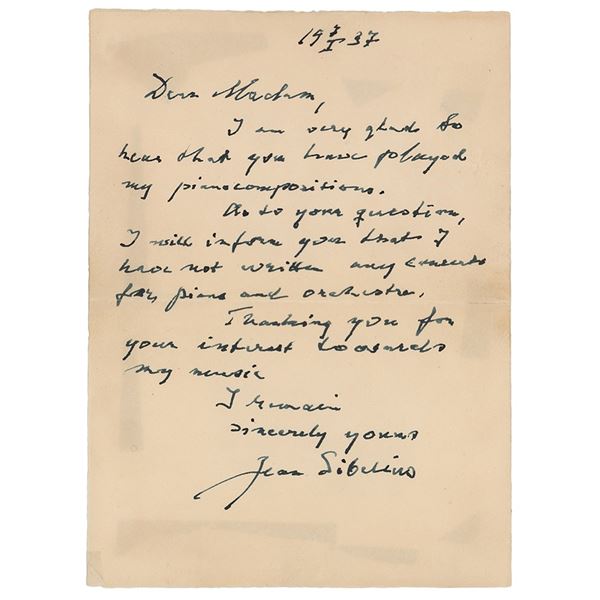 19 7/I 37
Dear Madam,
I am very glad to
hear that you have played
my pianocompositions.
As to your question,
I will inform you that I
have not written any concerto
for piano and orchestra.
Thanking you for
your interest towards
my music
I remain
sincerely yours
Jean Sibelius